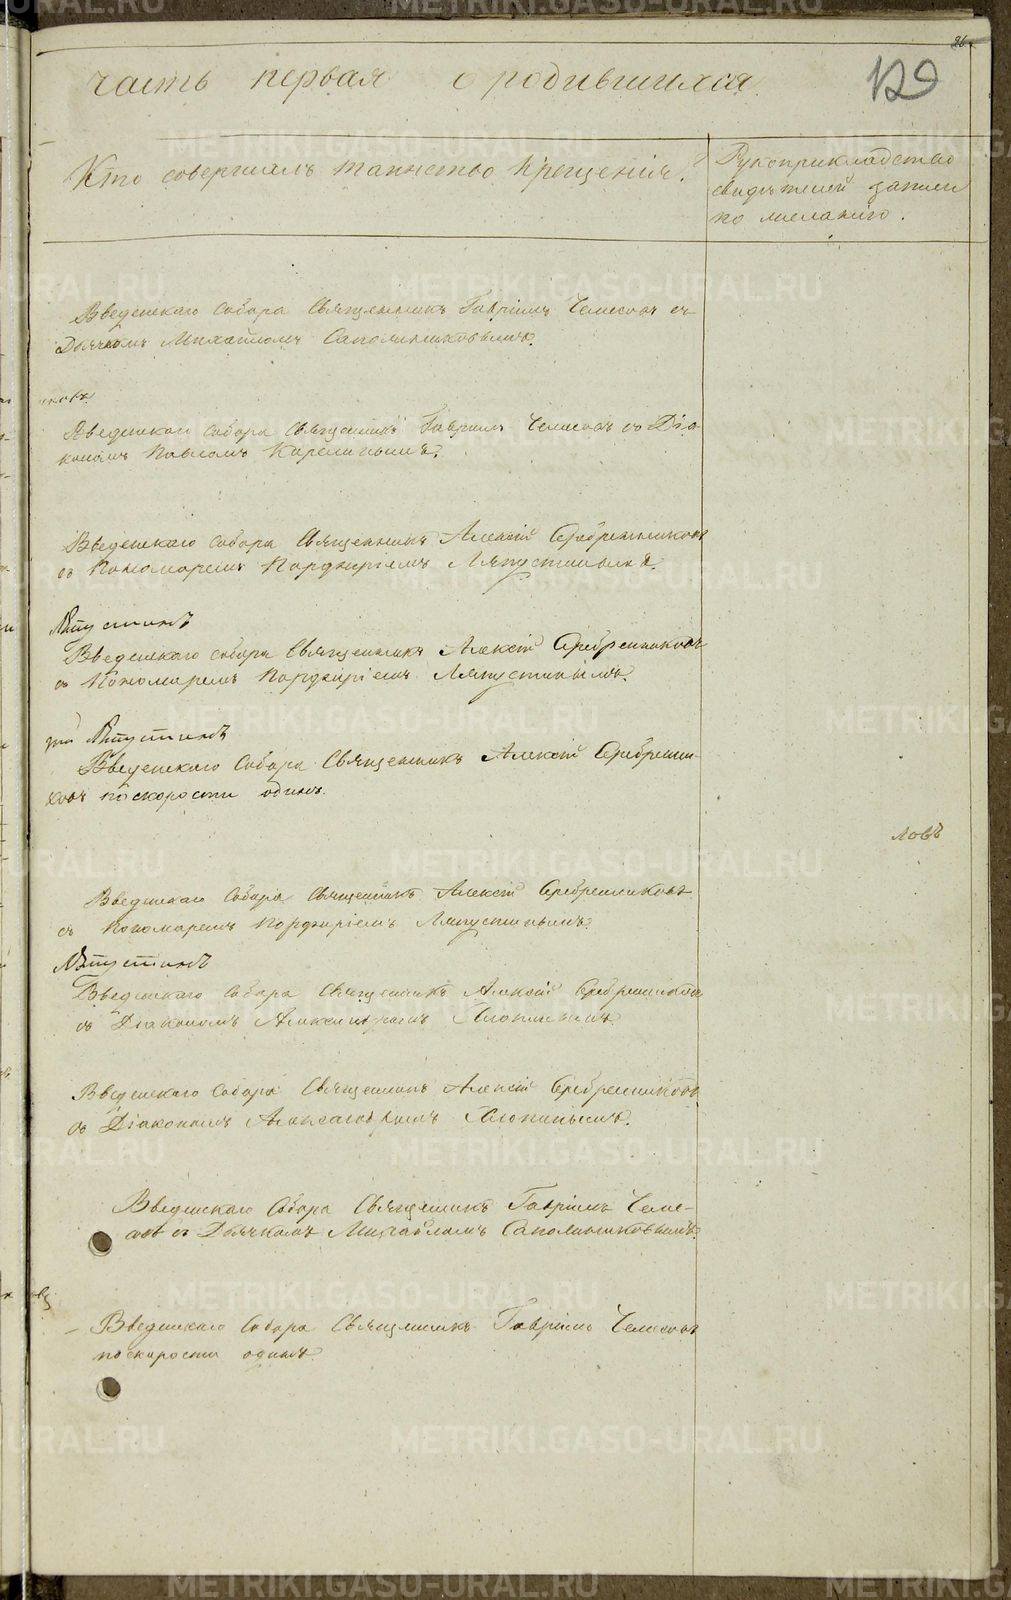 26.
129
часть первая о родившихся
Кто совершалъ таинство Крещенія.
Рукоприкладство
свидѣтелей записи
по желанію.
Введенскаго Собора Священникъ Гавріилъ Чемесовъ съ
Дьячкомъ Михаиломъ Сапожниковымъ.
иковъ
Введенскаго Собора Священникъ Гавріилъ Чемесовъ съ Діа-
кономъ Павломъ
Введенскаго Собора Священникъ Алексій Серебренниковъ
съ Пономаремъ Порфиріемъ Ляпустинымъ.
Ляпустинъ
Введенскаго Собора Священникъ Алексій Серебренниковъ
съ Пономаремъ Порфиріемъ Ляпустинымъ.
Ляпустинъ
Введенскаго Собора Священникъ Алексій Серебренни-
ковъ по скорости одинъ.
ловъ
Введенскаго Собора Священникъ Алексій Серебренниковъ
съ Пономаремъ Порфиріемъ Ляпустинымъ.
Ляпустинъ
Введенскаго Собора Священникъ Алексій Серебренниковъ
съ Діакономъ Александромъ
Введенскаго Собора Священникъ Алексій Серебренниковъ
съ Діакономъ Александромъ
Введенскаго Собора Священникъ Гавріилъ Чеме-
совъ съ Дьячкомъ Михаиломъ Сапожниковымъ.
Введенскаго Собора Священникъ Гавріилъ Чемесовъ
по скорости одинъ
METRIKI.GASO-URAL.RU